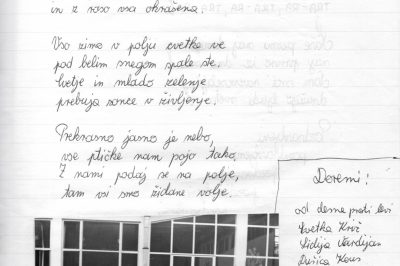 in z roso vsa okrašena.
Vso zimo v polju cvetke ve
pod belim snegom spale ste,
cvetje in mlado zelenje
prebuja sonce v življenje.
Prekrasno jasno je nebo,
vse ptičke nam pojo tako,
Z nami podaj se na polje,
tam vsi smo židane volje.
Doremi!
od desne proti levi
Cvetka Križ
Lidija
Dušica